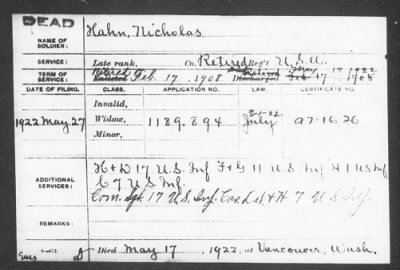 DEAD
NAME OF SOLDIER: Hahn, Nicholas
SERVICE: Late rank, Co. Retired Reg't U.S.A.
May 17 1922
TERM OF SERVICE: Retired Enlisted Feb. 17, 1908 Discharged Feb 17, 1908
DATE OF FILING. CLASS. APPLICATION NO. LAW. CERTIFICATE NO.
Invalid,
1922 May 27 Widow, 1189.894 July A7-16 26
Minor,
ADDITIONAL SERVICES: H + D 17 U.S. Inf F + G 11 U.S. Inf H 1 US Inf
C 7 U.S. Inf.
Com. Sgt. 17 U.S. Inf. Cos. + H 7 U.S. Inf.
REMARKS:
Died May 17, 1922, at Vancouver, Wash.